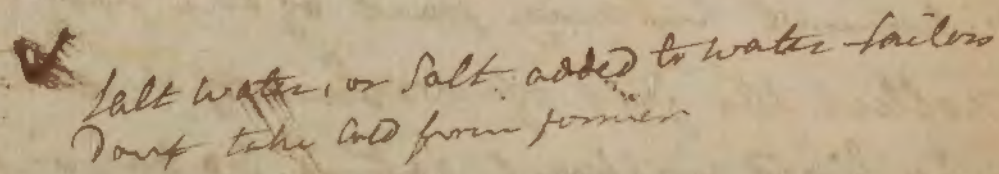 Salt water, or Salt added to water – Sailors
Dont take Cold from former